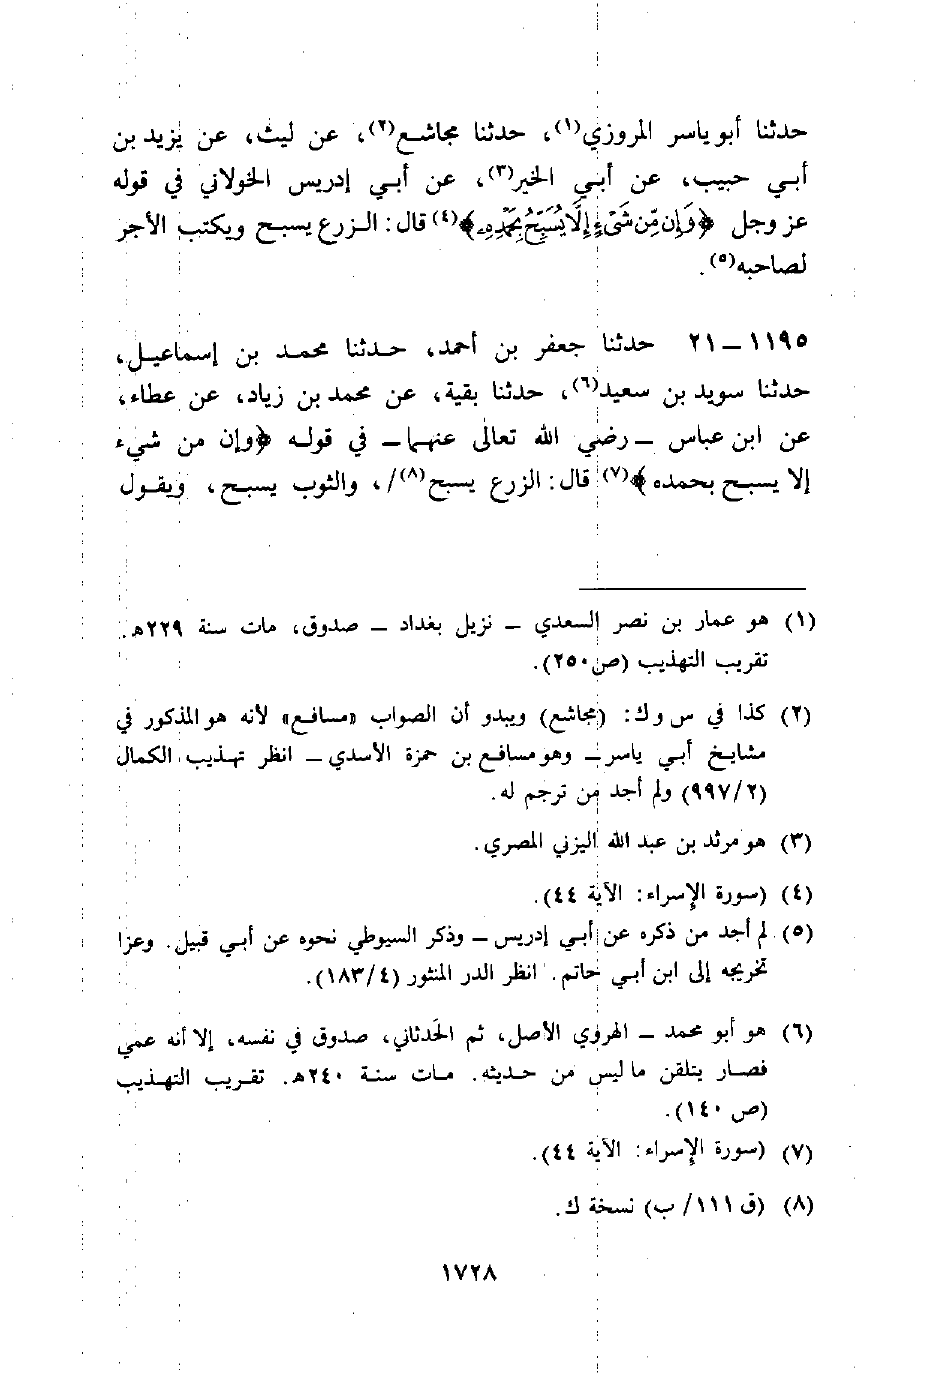 حدثنا أبو ياسر المروزي(١)، حدثنا مجاشع(٢)، عن ليث، عن يزيد بن
أبي حبيب، عن أبي الخير(٣)، عن أبي إدريس الخولاني في قوله
عز وجل ﴿وَإِن مِّن شَيْءٍ إِلَّا يُسَبِّحُ بِحَمْدِهِ﴾(٤) قال: الزرع يسبح ويكتب الأجر
لصاحبه(٥).
١١٩٥ – ٢١ حدثنا جعفر بن أحمد، حدثنا محمد بن إسماعيل،
حدثنا سويد بن سعيد(٦)، حدثنا بقية، عن محمد بن زياد، عن عطاء،
عن ابن عباس – رضي الله تعالى عنهما – في قوله ﴿وإن من شيء
إلا يسبح بحمده﴾(٧) قال: الزرع يسبح(٨)/، والثوب يسبح، ويقول
(١) هو عمار بن نصر السعدي – نزيل بغداد – صدوق، مات سنة ٢٢٩هـ.
تقريب التهذيب (ص٢٥٠).
(٢) كذا في س وك: (مجاشع) ويبدو أن الصواب «مسافع» لأنه هو المذكور في
مشايخ أبي ياسر – وهو مسافع بن حمزة الأسدي – انظر تهذيب الكمال
(٩٩٧/٢) ولم أجد من ترجم له.
(٣) هو مرثد بن عبد الله اليزني المصري.
(٤) (سورة الإسراء: الآية ٤٤).
(٥) لم أجد من ذكره عن أبي إدريس – وذكر السيوطي نحوه عن أبي قبيل. وعزا
تخريجه إلى ابن أبي حاتم. انظر الدر المنثور (١٨٣/٤).
(٦) هو أبو محمد – الهروي الأصل، ثم الحَدثاني، صدوق في نفسه، إلا أنه عمي
فصار يتلقن ما ليس من حديثه. مات سنة ٢٤٠هـ. تقريب التهذيب
(ص ١٤٠).
(٧) (سورة الإسراء: الآية ٤٤).
(٨) (ق ١١١/ ب) نسخة ك.
١٧٢٨